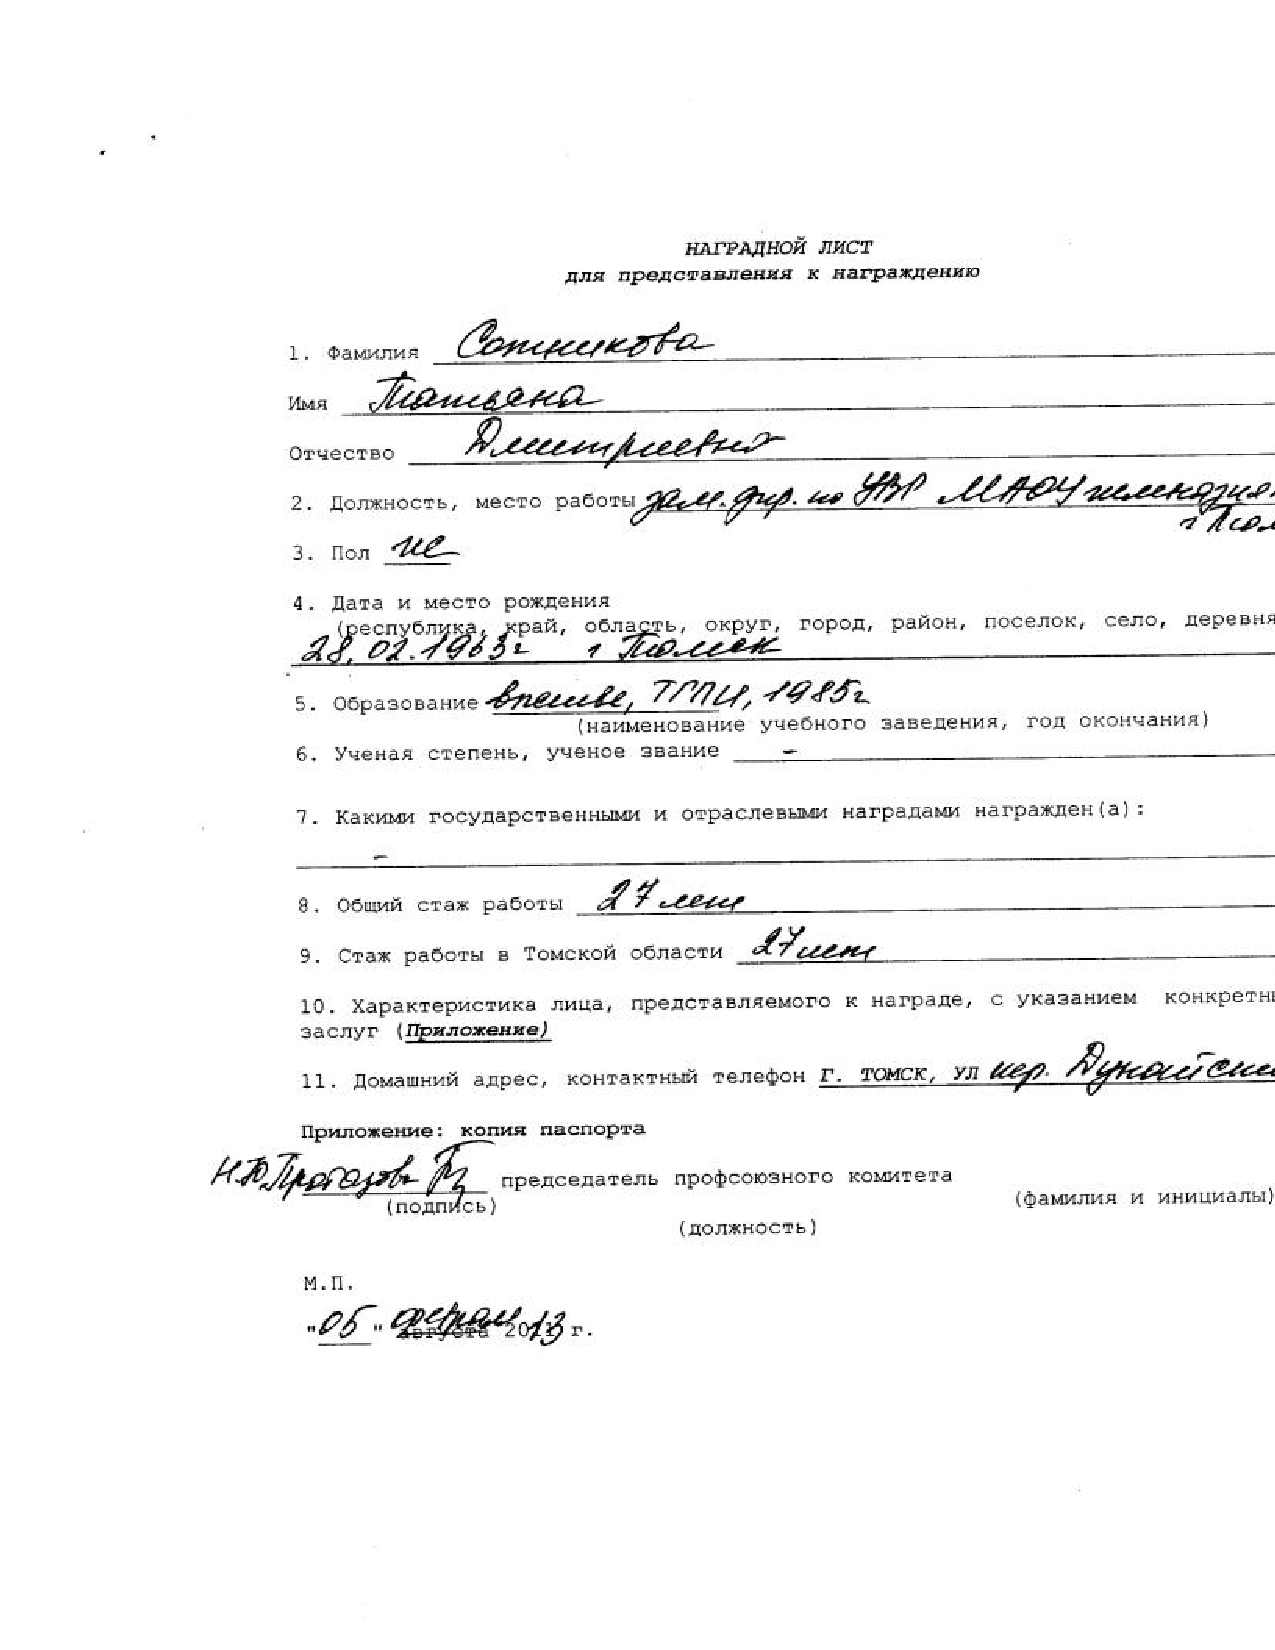 НАГРАДНОЙ ЛИСТ
для представления к награждению
1. Фамилия Сотникова
Имя Татьяна
Отчество Дмитриевна
2. Должность, место работы зам. дир. по УВР МАОУ гимназия
г Том
3. Пол ж
4. Дата и место рождения
(республика, край, область, округ, город, район, поселок, село, деревня
28.02.1963г г Томск
5. Образование высшее, ТГПИ, 1985г
(наименование учебного заведения, год окончания)
6. Ученая степень, ученое звание -
7. Какими государственными и отраслевыми наградами награжден(а):
-
8. Общий стаж работы 27 лет
9. Стаж работы в Томской области 27 лет
10. Характеристика лица, представляемого к награде, с указанием конкретн
заслуг (Приложение)
11. Домашний адрес, контактный телефон Г. ТОМСК, УЛ пер. Дунайски
Приложение: копия паспорта
Н.Ю. председатель профсоюзного комитета
(подпись) (фамилия и инициалы)
(должность)
М.П.
"05" августа 2013 г.